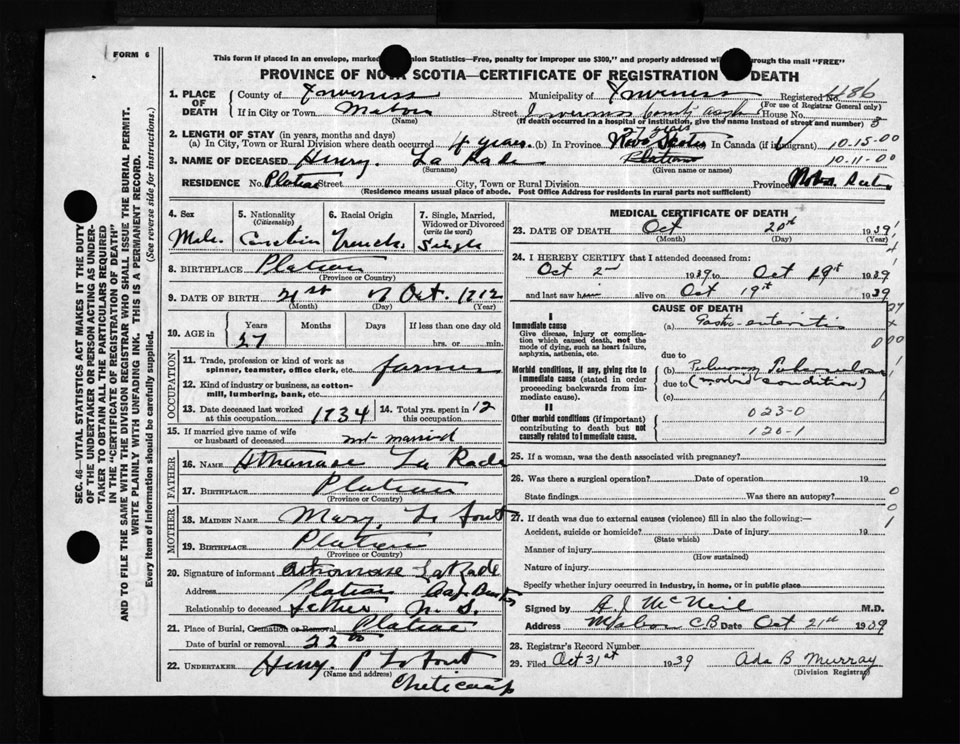 FORM 6
This form if placed in an envelope, marked ion Statistics—Free, penalty for improper use $300," and properly addressed will through the mail "FREE"
PROVINCE OF NOVA SCOTIA—CERTIFICATE OF REGISTRATION DEATH
1. PLACE OF DEATH
County of Inverness Municipality of Inverness Registered 486
(For use of Registrar General only)
If in City or Town Mabou Street Inverness County House No.
(Name) (If death occurred in a hospital or institution, give the name instead of street and number)
2. LENGTH OF STAY (in years, months and days) 27 years
(a) In City, Town or Rural Division where death occurred 4 years. (b) In Province Nova Scotia In Canada (if immigrant) 10-15-00
3. NAME OF DECEASED Henry La Rade Plateau 10-11-00
(Surname) (Given name or names)
RESIDENCE No. Plateau Street City, Town or Rural Division Province Nova Scotia
(Residence means usual place of abode. Post Office Address for residents in rural parts not sufficient)
4. Sex
Male
5. Nationality
(Citizenship)
6. Racial Origin
French
7. Single, Married, Widowed or Divorced
(write the word)
Single
8. BIRTHPLACE Plateau
(Province or Country)
9. DATE OF BIRTH 21st of Oct. 1912
(Month) (Day) (Year)
10. AGE in
Years Months Days If less than one day old
27 hrs. or min.
OCCUPATION
11. Trade, profession or kind of work as
spinner, teamster, office clerk, etc. farmer
12. Kind of industry or business, as cotton-
mill, lumbering, bank, etc.
13. Date deceased last worked
at this occupation 1934
14. Total yrs. spent in
this occupation 12
15. If married give name of wife
or husband of deceased not married
FATHER
16. NAME Athanase La Rade
17. BIRTHPLACE Plateau
(Province or Country)
MOTHER
18. MAIDEN NAME Mary
19. BIRTHPLACE Plateau
(Province or Country)
20. Signature of informant Athanase LaRade
Address Plateau Cap Breton
Relationship to deceased father N. S.
21. Place of Burial, Cremation or Removal Plateau
Date of burial or removal 22
22. UNDERTAKER Henry P
(Name and address)
Cheticamp
MEDICAL CERTIFICATE OF DEATH
23. DATE OF DEATH Oct 20th 1939
(Month) (Day) (Year)
24. I HEREBY CERTIFY that I attended deceased from:
Oct 2nd 1939 to Oct 19th 1939
and last saw him alive on Oct 19th 1939
CAUSE OF DEATH
I
Immediate cause
Give disease, injury or complica-
tion which caused death, not the
mode of dying, such as heart failure,
asphyxia, asthenia, etc.
(a) Gastro-enteritis
due to
Morbid conditions, if any, giving rise
to immediate cause (stated in order
proceeding backwards from im-
mediate cause).
(b) Pulmonary Tuberculosis
due to (morbid condition)
(c)
II
Other morbid conditions (if important)
contributing to death but not
causally related to immediate cause.
023-0
120-1
25. If a woman, was the death associated with pregnancy?
26. Was there a surgical operation? Date of operation 19
State findings Was there an autopsy?
27. If death was due to external causes (violence) fill in also the following:—
Accident, suicide or homicide? Date of injury 19
(State which)
Manner of injury
(How sustained)
Nature of injury
Specify whether injury occurred in industry, in home, or in public place
Signed by A J McNeil M.D.
Address Mabou C.B Date Oct 21st 1939
28. Registrar's Record Number
29. Filed Oct 31st 1939 Ada B Murray
(Division Registrar)
SEC. 46—VITAL STATISTICS ACT MAKES IT THE DUTY
OF THE UNDERTAKER OR PERSON ACTING AS UNDER-
TAKER TO OBTAIN ALL THE PARTICULARS REQUIRED
IN THE "CERTIFICATE OF REGISTRATION OF DEATH"
AND TO FILE THE SAME WITH THE DIVISION REGISTRAR WHO SHALL ISSUE THE BURIAL PERMIT.
WRITE PLAINLY WITH UNFADING INK. THIS IS A PERMANENT RECORD.
Every item of information should be carefully supplied. (See reverse side for instructions.)